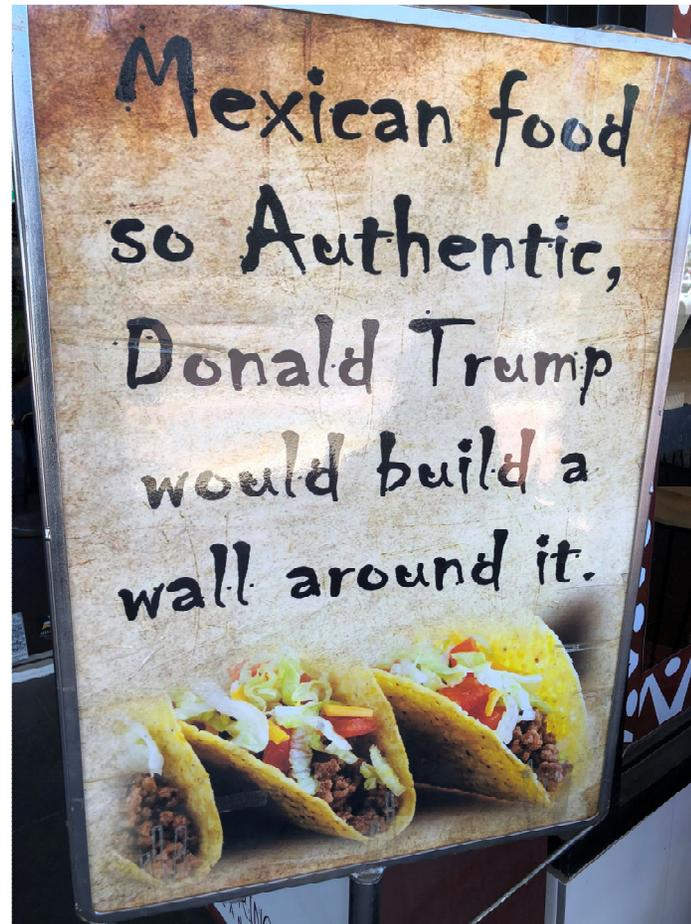 Mexican food
so Authentic,
Donald Trump
would build a
wall around it.